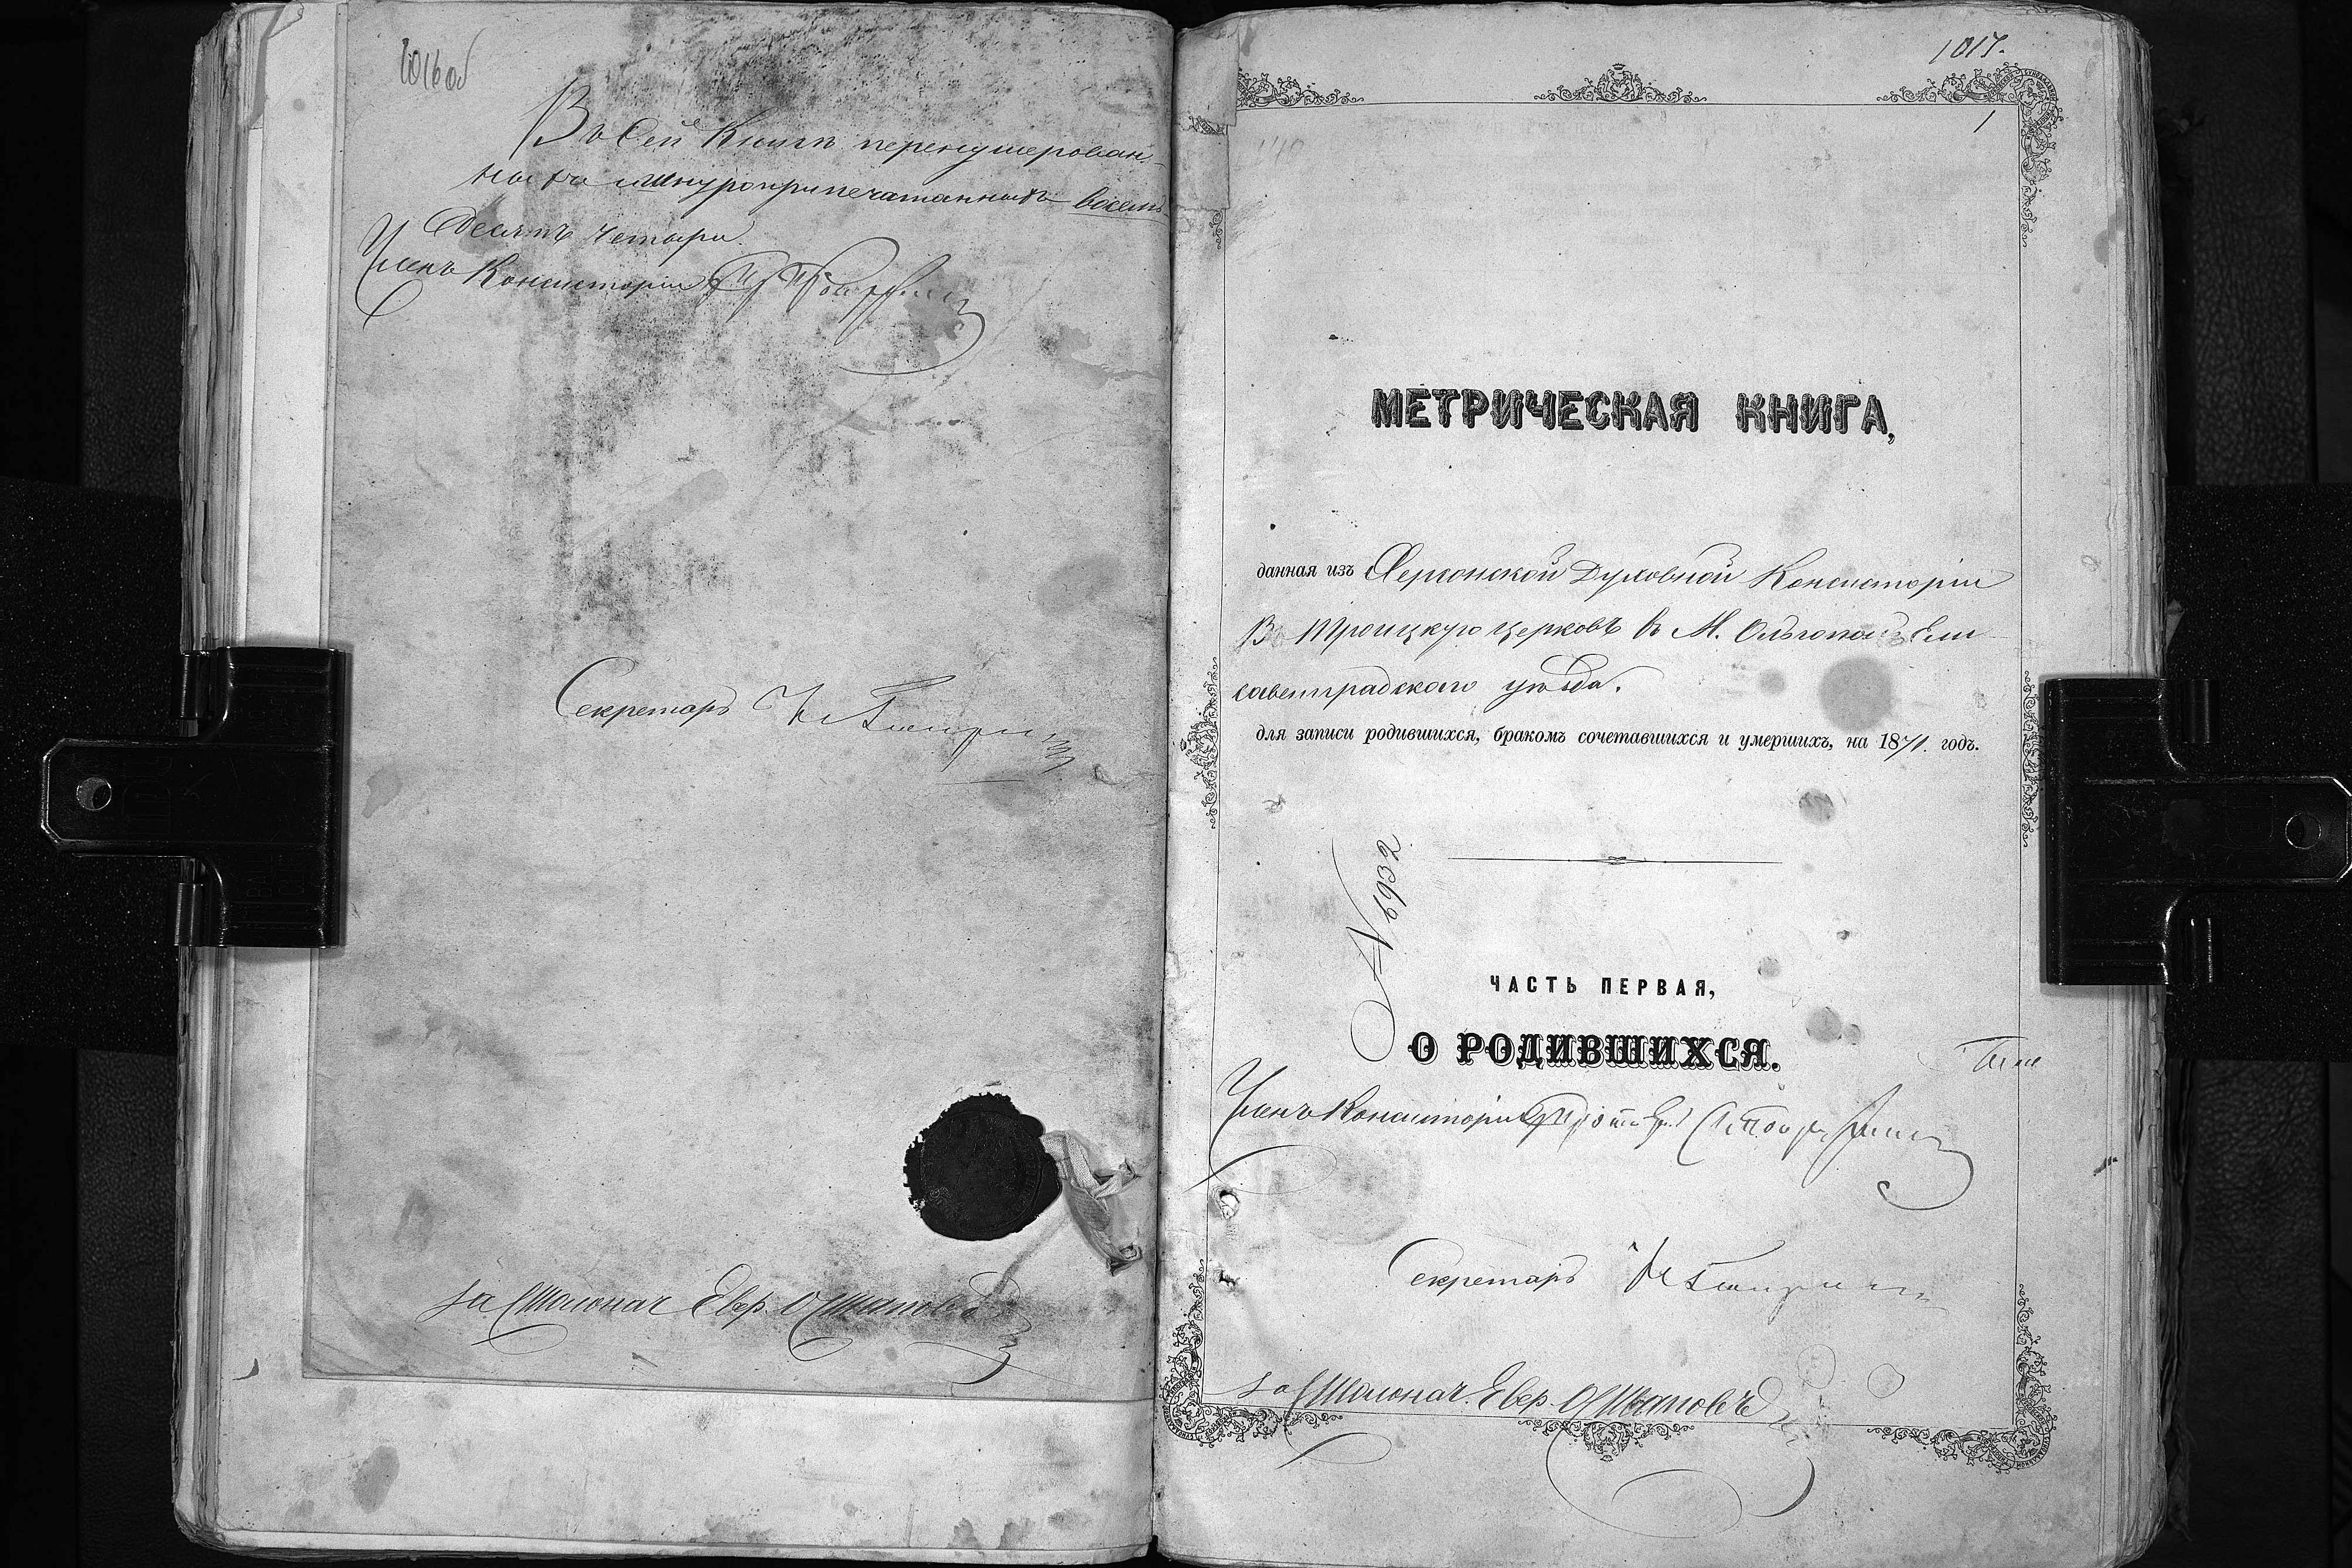 1016 об
Въ сей Книгѣ перенумерован-
ныхъ и шнуроприпечатанныхъ восемь
десятъ четыри.
Членъ Консисторіи
Секретарь
За Столонач. Евр. Ивановъ
1017.
1
МЕТРИЧЕСКАЯ КНИГА,
данная изъ Херсонской Духовной Консисторіи
Въ Троицкую церковь въ М. Ольгополь Ели-
саветградскаго уѣзда.
для записи родившихся, бракомъ сочетавшихся и умершихъ, на 1871. годъ.
№ 6932
ЧАСТЬ ПЕРВАЯ,
О РОДИВШИХСЯ.
Членъ Консисторіи
Секретарь
За Столонач. Евр. Ивановъ